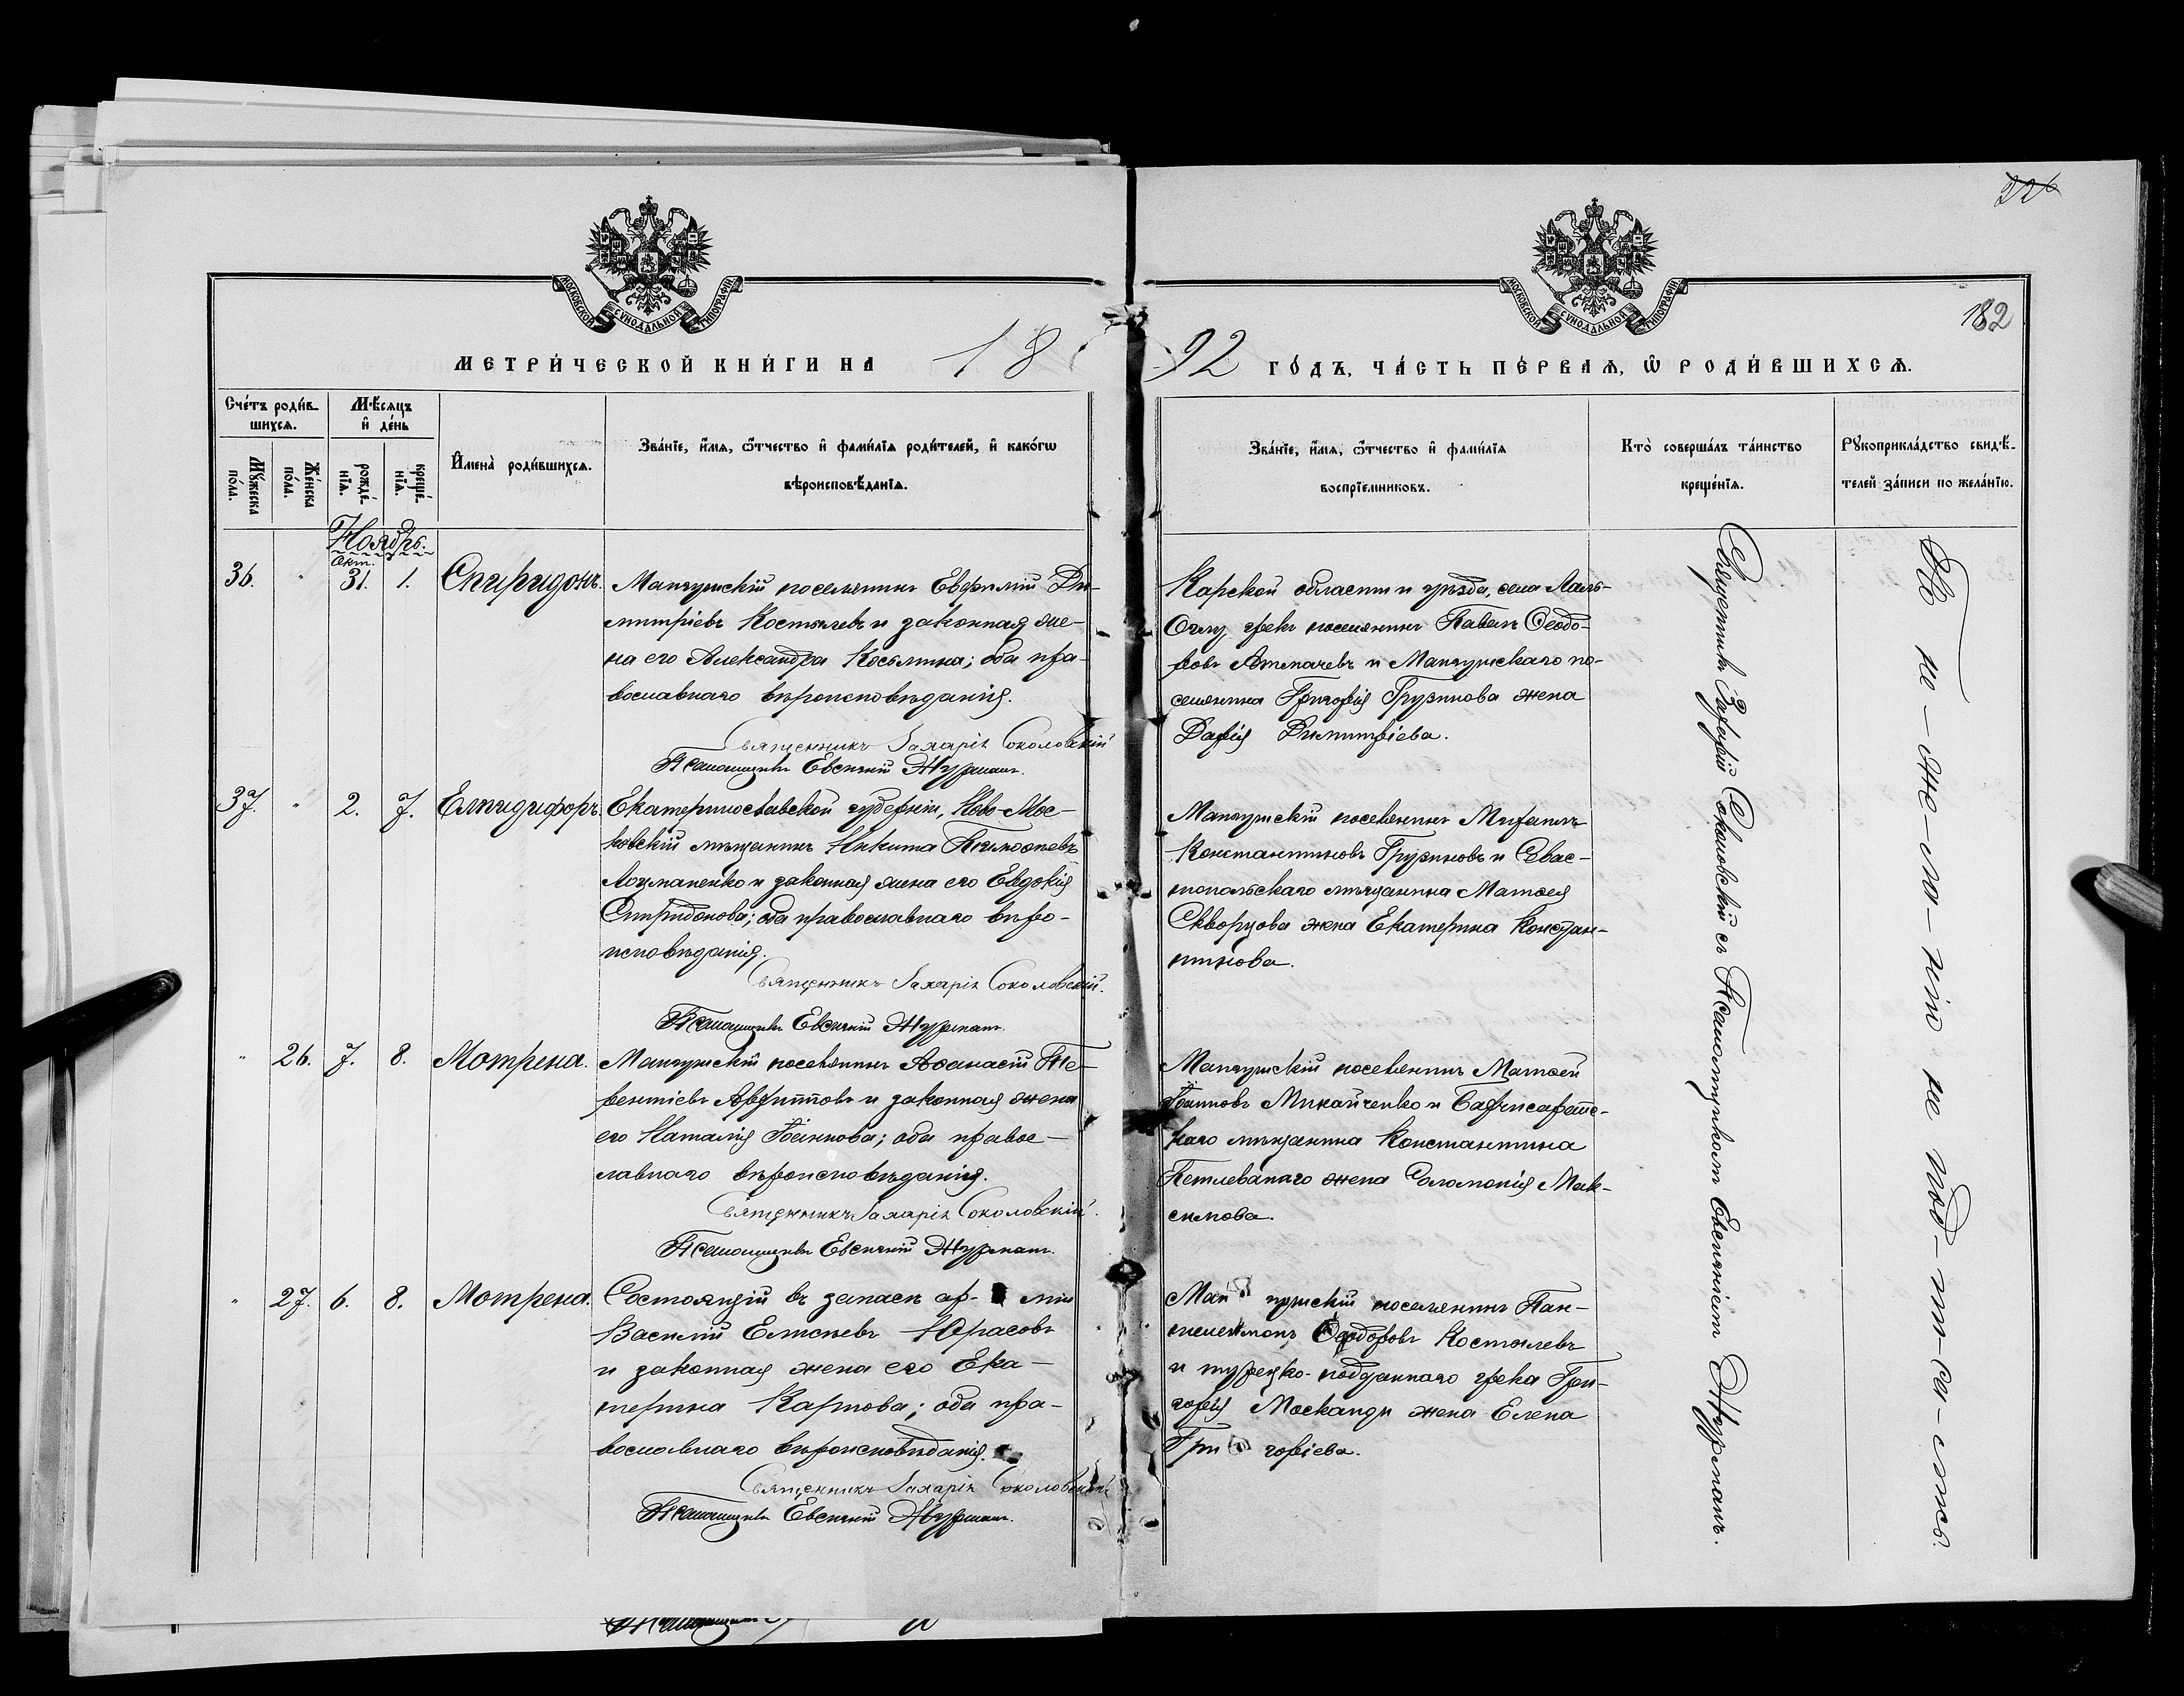 226
МОСКОВСКОЙ СѴНОДАЛЬНОЙ ТИПОГРАФІИ
МОСКОВСКОЙ СѴНОДАЛЬНОЙ ТИПОГРАФІИ
182
МЕТРИ́ЧЕСКОЙ КНИ́ГИ НА 18
92 ГО́ДЪ, ЧА́СТЬ ПЕ́РВАѦ, Ѿ РОДИ́ВШИХСѦ.
Сче́тъ роди́в-
шихсѧ.
Мꙋжеска по́ла.
Же́нска по́ла.
Мѣ́сѧцъ
и҆ де́нь
рожде́-
нїѧ.
креще́-
нїѧ.
И҆мена̀ роди́вшихсѧ.
Зва́нїе, и҆́мѧ, ѻ҆́тчество и҆ фами́лїѧ роди́телей, и҆ како́гѡ
вѣроисповѣ́данїѧ.
Зва́нїе, и҆́мѧ, ѻ҆́тчество и҆ фами́лїѧ
воспрїе́мниковъ.
Кто̀ соверша́лъ та́инство
креще́нїѧ.
Рꙋкоприкла́дство свидѣ́-
телей за́писи по жела́нїю.
Ноябрь.
Окт.
36. " 31. 1. Спиридонъ.
Мангушскій поселянинъ Евфимій Ди-
митріевъ Костылевъ и законная же-
на его Александра Косьмина; оба пра-
вославнаго вѣроисповѣданія.
Священникъ Захарія Соколовскій
Псаломщикъ Евгеній Журманъ.
Карской области и уѣзда, села Лалъ-
Оглу грекъ поселянинъ Павелъ Ѳеодо-
ровъ и Мангушскаго по-
селянина Григорія Грузинова жена
Дарія Димитріева.
37. " 2. 7. Елпидифоръ.
Екатеринославской губерніи, Ново-Мос-
ковскій мѣщанинъ Никита Тимоѳеевъ
Лоцманенко и законная жена его Евдокія
Спиридонова; оба православнаго вѣро-
исповѣданія.
Священникъ Захарія Соколовскій.
Псаломщикъ Евгеній Журманъ.
Мангушскій поселянинъ Михаилъ
Константиновъ Грузиновъ и Севас-
топольскаго мѣщанина Матѳея
Скворцова жена Екатерина Констан-
тинова.
" 26. 7. 8. Мотрена.
Мангушскій поселянинъ Аѳанасій Те-
рентіевъ и законная жена
его Наталія Іоаннова; оба правос-
лавнаго вѣроисповѣданія.
Священникъ Захарія Соколовскій.
Псаломщикъ Евгеній Журманъ.
Мангушскій поселянинъ Матѳей
Іоанновъ Микайченко и Бахчисарайс-
каго мѣщанина Константина
Петлеванаго жена Соломонія Мак-
симова.
" 27. 6. 8. Мотрена.
Состоящій въ запасѣ ар- міи
Василій Елисѣевъ Юрасовъ
и законная жена его Ека-
терина Карпова; оба пра-
вославнаго вѣроисповѣданія.
Священникъ Захарія Соколовскій
Псаломщикъ Евгеній Журманъ.
Ман гушскій поселянинъ Пан-
телеимонъ Ѳеодоровъ Костылевъ
и турецко-подданнаго грека Гри-
горія Москанди жена Елена
Гри горіева.
Священникъ Захарій Соколовскій съ Псаломщикомъ Евгеніемъ Журманъ.
По же-ла-нію не под-пи-са-лись.